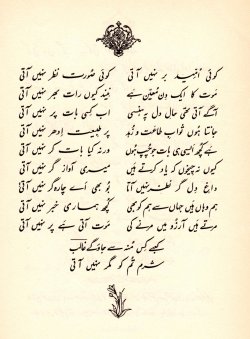 کوئی اُمّید بر نہیں آتی کوئی صورت نظر نہیں آتی
موت کا ایک دن معیّن ہے نیند کیوں رات بھر نہیں آتی
آگے آتی تھی حال دل پہ ہنسی اب کسی بات پر نہیں آتی
جانتا ہوں ثواب طاعت و زہد پر طبیعت اِدھر نہیں آتی
ہے کچھ ایسی ہی بات جو چپ ہوں ورنہ کیا بات کر نہیں آتی
کیوں نہ چیخوں کہ یاد کرتے ہیں میری آواز گر نہیں آتی
داغِ دل گر نظر نہیں آتا بو بھی اے چارہ گر نہیں آتی
ہم وہاں ہیں جہاں سے ہم کو بھی کچھ ہماری خبر نہیں آتی
مرتے ہیں آرزو میں مرنے کی موت آتی ہے پر نہیں آتی
کعبے کس مُنہ سے جاؤ گے غالب
شرم تم کو مگر نہیں آتی